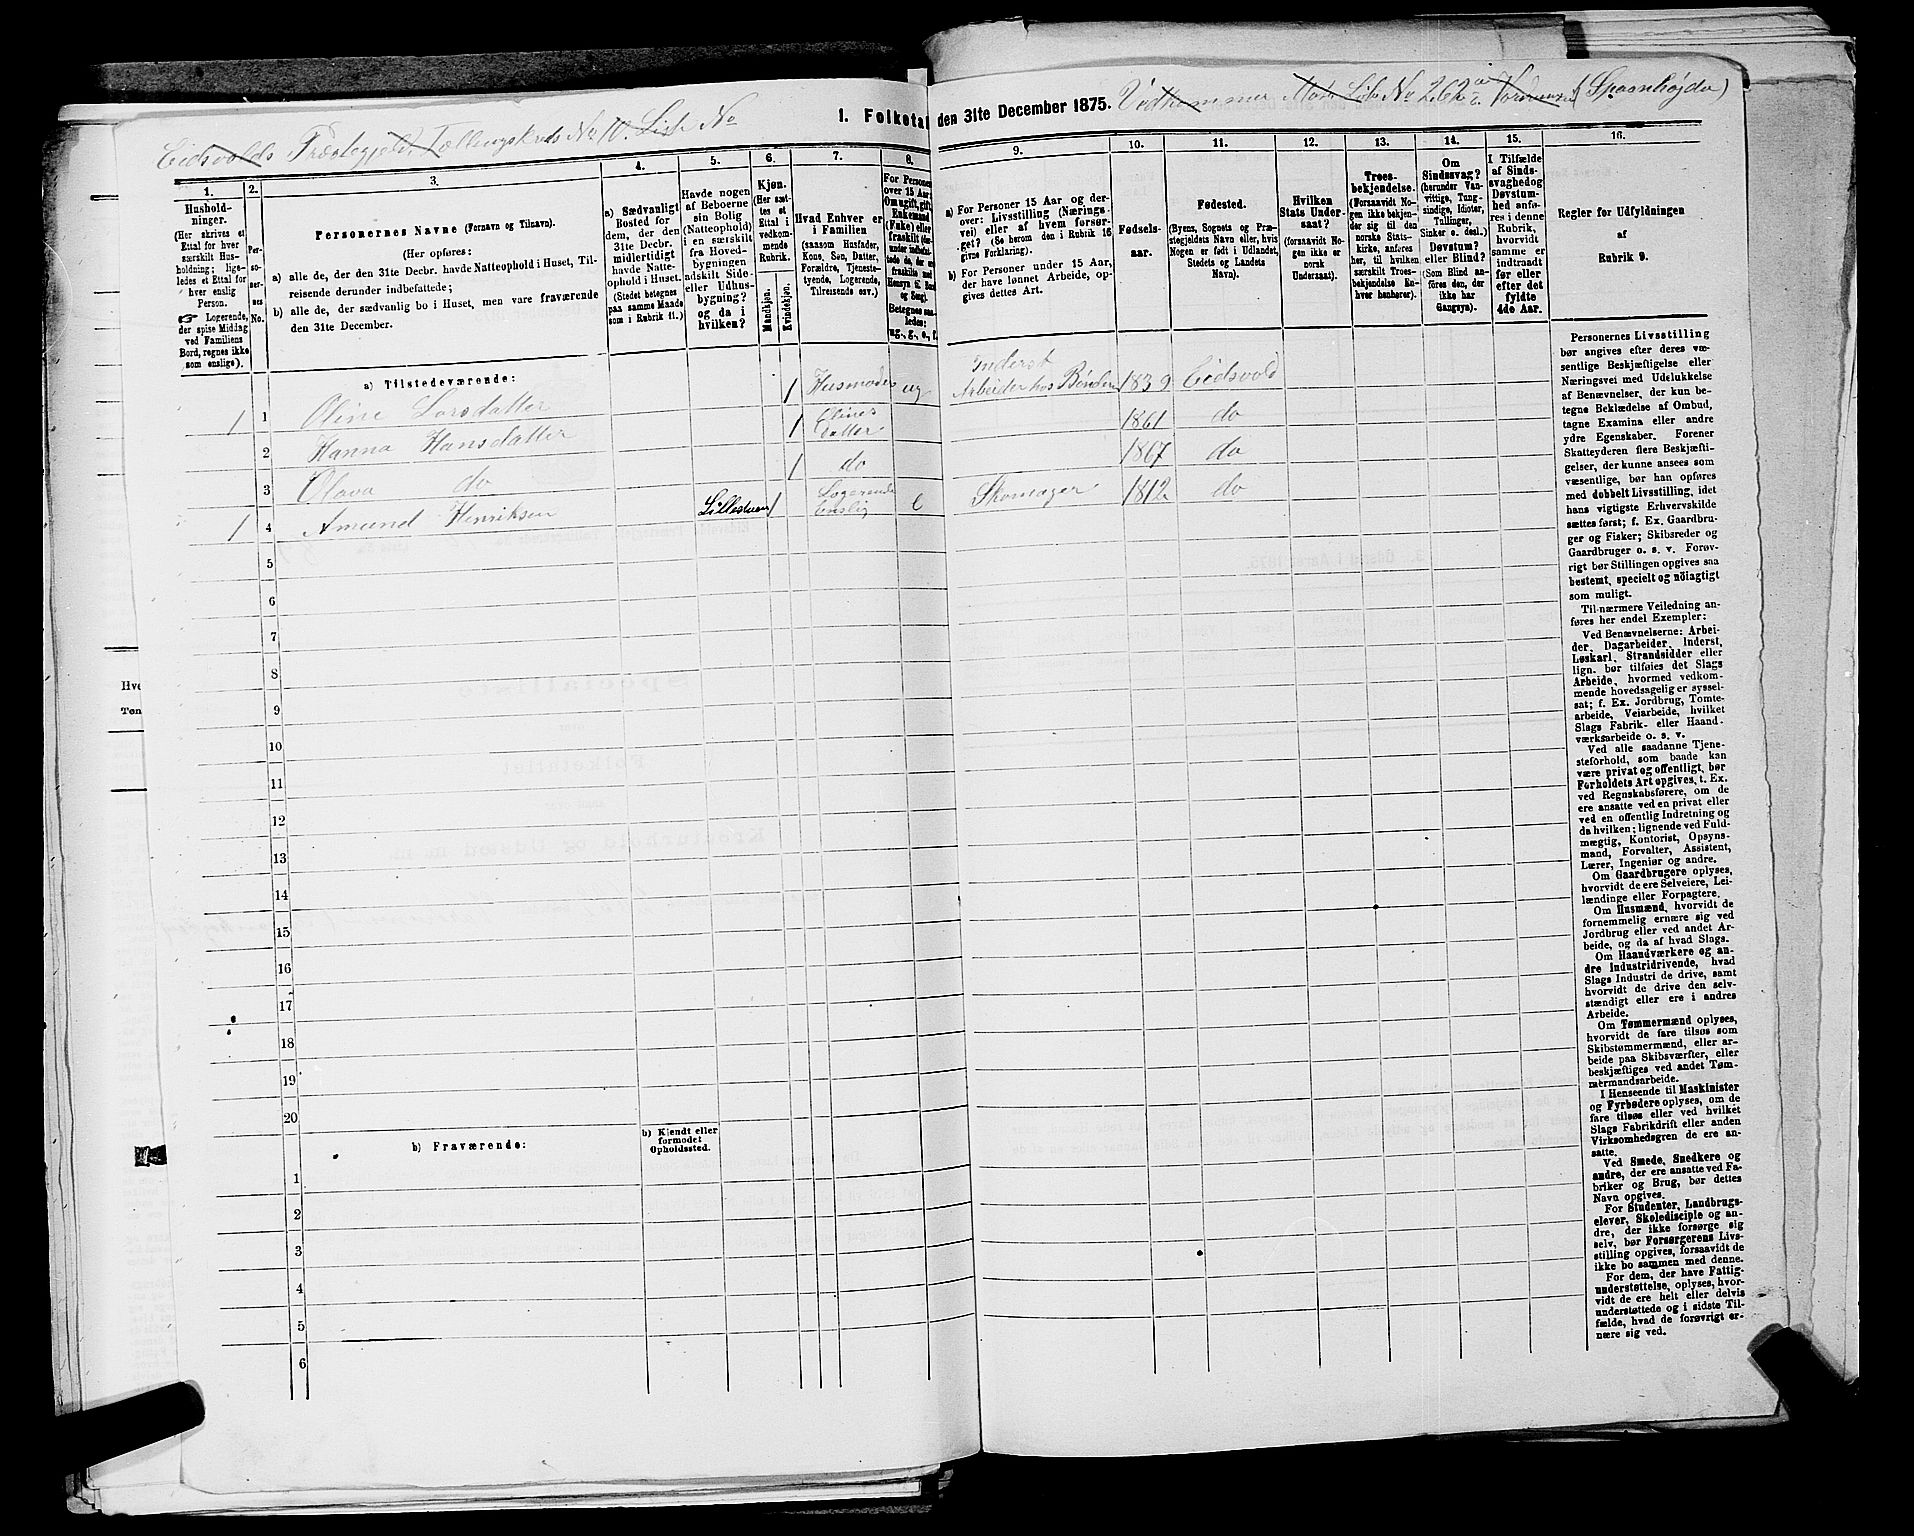 1. Folketal den 31te December 1875.
Eidsvolds Præstegjeld, Tællingskreds No 10. Liste No
Vedkommer Liste No 262a (Spaanhøjda)
1.
Husholdninger.
(Her skrives et
Ettal for hver
særskilt Husholdning; ligeledes et Ettal
for hver enslig
Person.
☞ Logerende,
der spise Middag
ved Familiens
Bord, regnes ikke
som enslige).
2.
Personernes
No.
3.
Personernes Navne (Fornavn og Tilnavn).
(Her opføres:
a) alle de, der den 31te Decbr. havde Natteophold i Huset, Tilreisende derunder indbefattede;
b) alle de, der sædvanlig bo i Huset, men vare fraværende
den 31te December.
4.
a) Sædvanligt
Bosted for
dem, der den
31te Decbr.
midlertidigt
havde Natteophold i Huset.
(Stedet betegnes
paa samme Maade
som i Rubrik 11.)
5.
Havde nogen
af Beboerne
sin Bolig
(Natteophold)
i en særskilt
fra Hovedbygningen
adskilt Side-
eller Udhusbygning?
og da i
hvilken?
6.
Kjøn.
(Her sættes et
Ettal i
vedkommende
Rubrik.
Mandkjøn.
Kvindekjøn.
7.
Hvad Enhver er
i Familien
(saasom Husfader,
Kone, Søn, Datter,
Forældre, Tjenestetyende, Logerende,
Tilreisende osv.)
8.
For Personer
over 15 Aar:
Om ugift, gift,
Enkemand
(Enke) eller
fraskilt
9.
a) For Personer 15 Aar og derover: Livsstilling (Næringsvei) eller af hvem forsørget? (Se herom den i Rubrik 16
givne Forklaring).
b) For Personer under 15 Aar,
der have lønnet Arbeide, opgives dettes Art.
10.
Fødselsaar.
11.
Fødested.
(Byens, Sognets og Præstegjeldets Navn eller, hvis
Nogen er født i Udlandet,
Stedets og Landets
Navn).
12.
Hvilken
Stats Undersaat?
(forsaavidt Nogen ikke er
norsk
Undersaat).
13.
Troesbekjendelse.
(Forsaavidt Nogen ikke bekjender sig til den
norske Statskirke, anføres
her, til hvilken
særskilt Troesbekjendelse Enhver henhører).
14.
Om
Sindssvag?
(herunder Vanvittige, Tungsindige, Idioter,
Tullinger,
Sinker o. desl.)
Døvstum?
eller Blind?
(Som Blind anføres den, der
ikke har
Gangsyn).
15.
I Tilfælde
af Sindssvaghed og
Døvstumhed anføres i denne
Rubrik,
hvorvidt
samme er
indtraadt
før eller
efter det
fyldte
4de Aar.
16.
Regler for Udfyldningen
af
Rubrik 9.
a) Tilstedeværende:
1 1 Oline Larsdatter 1 Husmoder ug Inderst Arbeider hos Bønder 1839 Eidsvold
2 Hanna Hansdatter 1 Olines datter 1861 do
3 Olava do 1 do 1867 do
1 4 Amund Henriksen Lillestuen 1 Logerende Enslig e Skomager 1812 do
5
6
7
8
9
10
11
12
13
14
15
16
17
18
19
20
b) Fraværende:
b) Kjendt eller
formodet
Opholdssted.
1
2
3
4
5
6
Personernes Livsstilling
bør angives efter deres væsentlige Beskjæftigelse eller
Næringsvei med Udelukkelse
af Benævnelser, der kun betegne Beklædelse af Ombud,
tagne Examina eller andre
ydre Egenskaber. Forener
Skatteyderen flere Beskjæftigelser, der kunne ansees som
væsentlige, bør han opføres
med dobbelt Livsstilling, idet
hans vigtigste Erhvervskilde
sættes først; f. Ex. Gaardbruger og Fisker; Skibsreder og
Gaardbruger o. s. v. Forøvrigt bør Stillingen opgives saa
bestemt, specielt og nöiagtigt
som muligt.
Til nærmere Veiledning anføres her endel Exempler:
Ved Benævnelserne: Arbeider, Dagarbeider, Inderst,
Løskarl, Strandsidder eller
lign. bør tilføies det Slags
Arbeide, hvormed vedkommende hovedsagelig er sysselsat; f. Ex. Jordbrug, Tomtearbeide, Veiarbeide, hvilket
Slags Fabrik- eller Haandværksarbeide o. s. v.
Ved alle saadanne Tjenesteforhold, som baade kan
være privat og offentligt, bør
Forholdets Art opgives, t. Ex.
ved Regnskabsførere, om de
ere ansatte ved en privat eller
ved en offentlig Indretning og
da hvilken; lignende ved Fuldmægtig, Kontorist, Opsynsmand, Forvalter, Assistent,
Lærer, Ingeniør og andre.
Om Gaardbrugere oplyses,
hvorvidt de ere Selveiere, Leilændinge eller Forpagtere.
Om Husmænd, hvorvidt de
fornemmelig ernære sig ved
Jordbrug eller ved andet Arbeide, og da af hvad Slags.
Om Haandværkere og andre Industridrivende, hvad
Slags Industri de drive, samt
hvorvidt de drive den selvstændigt eller ere i andres
Arbeide.
Om Tømmermænd oplyses,
hvorvidt de fare tilsøs som
Skibstømmermænd, eller arbeide paa Skibsværfter, eller
beskjæftiges ved andet Tømmermandsarbeide.
I Henseende til Maskinister
og Fyrbødere oplyses, om de
fare tilsøs eller ved hvilket
Slags Fabrikdrift eller anden
Virksomhedsgren de ere ansatte.
Ved Smede, Snedkere og
andre, der ere ansatte ved Fabriker og Brug, bør dettes
Navn opgives.
For Studenter, Landbrugselever, Skoledisciple og andre, der ikke forsørge sig
selv, bør Forsørgerens Livsstilling opgives, forsaavidt de
ikke bo sammen med denne.
For dem, der have Fattigunderstøttelse, oplyses, hvorvidt de ere helt eller delvis
understøttede og i sidste Tilfælde, hvad de forøvrigt ernære sig ved.